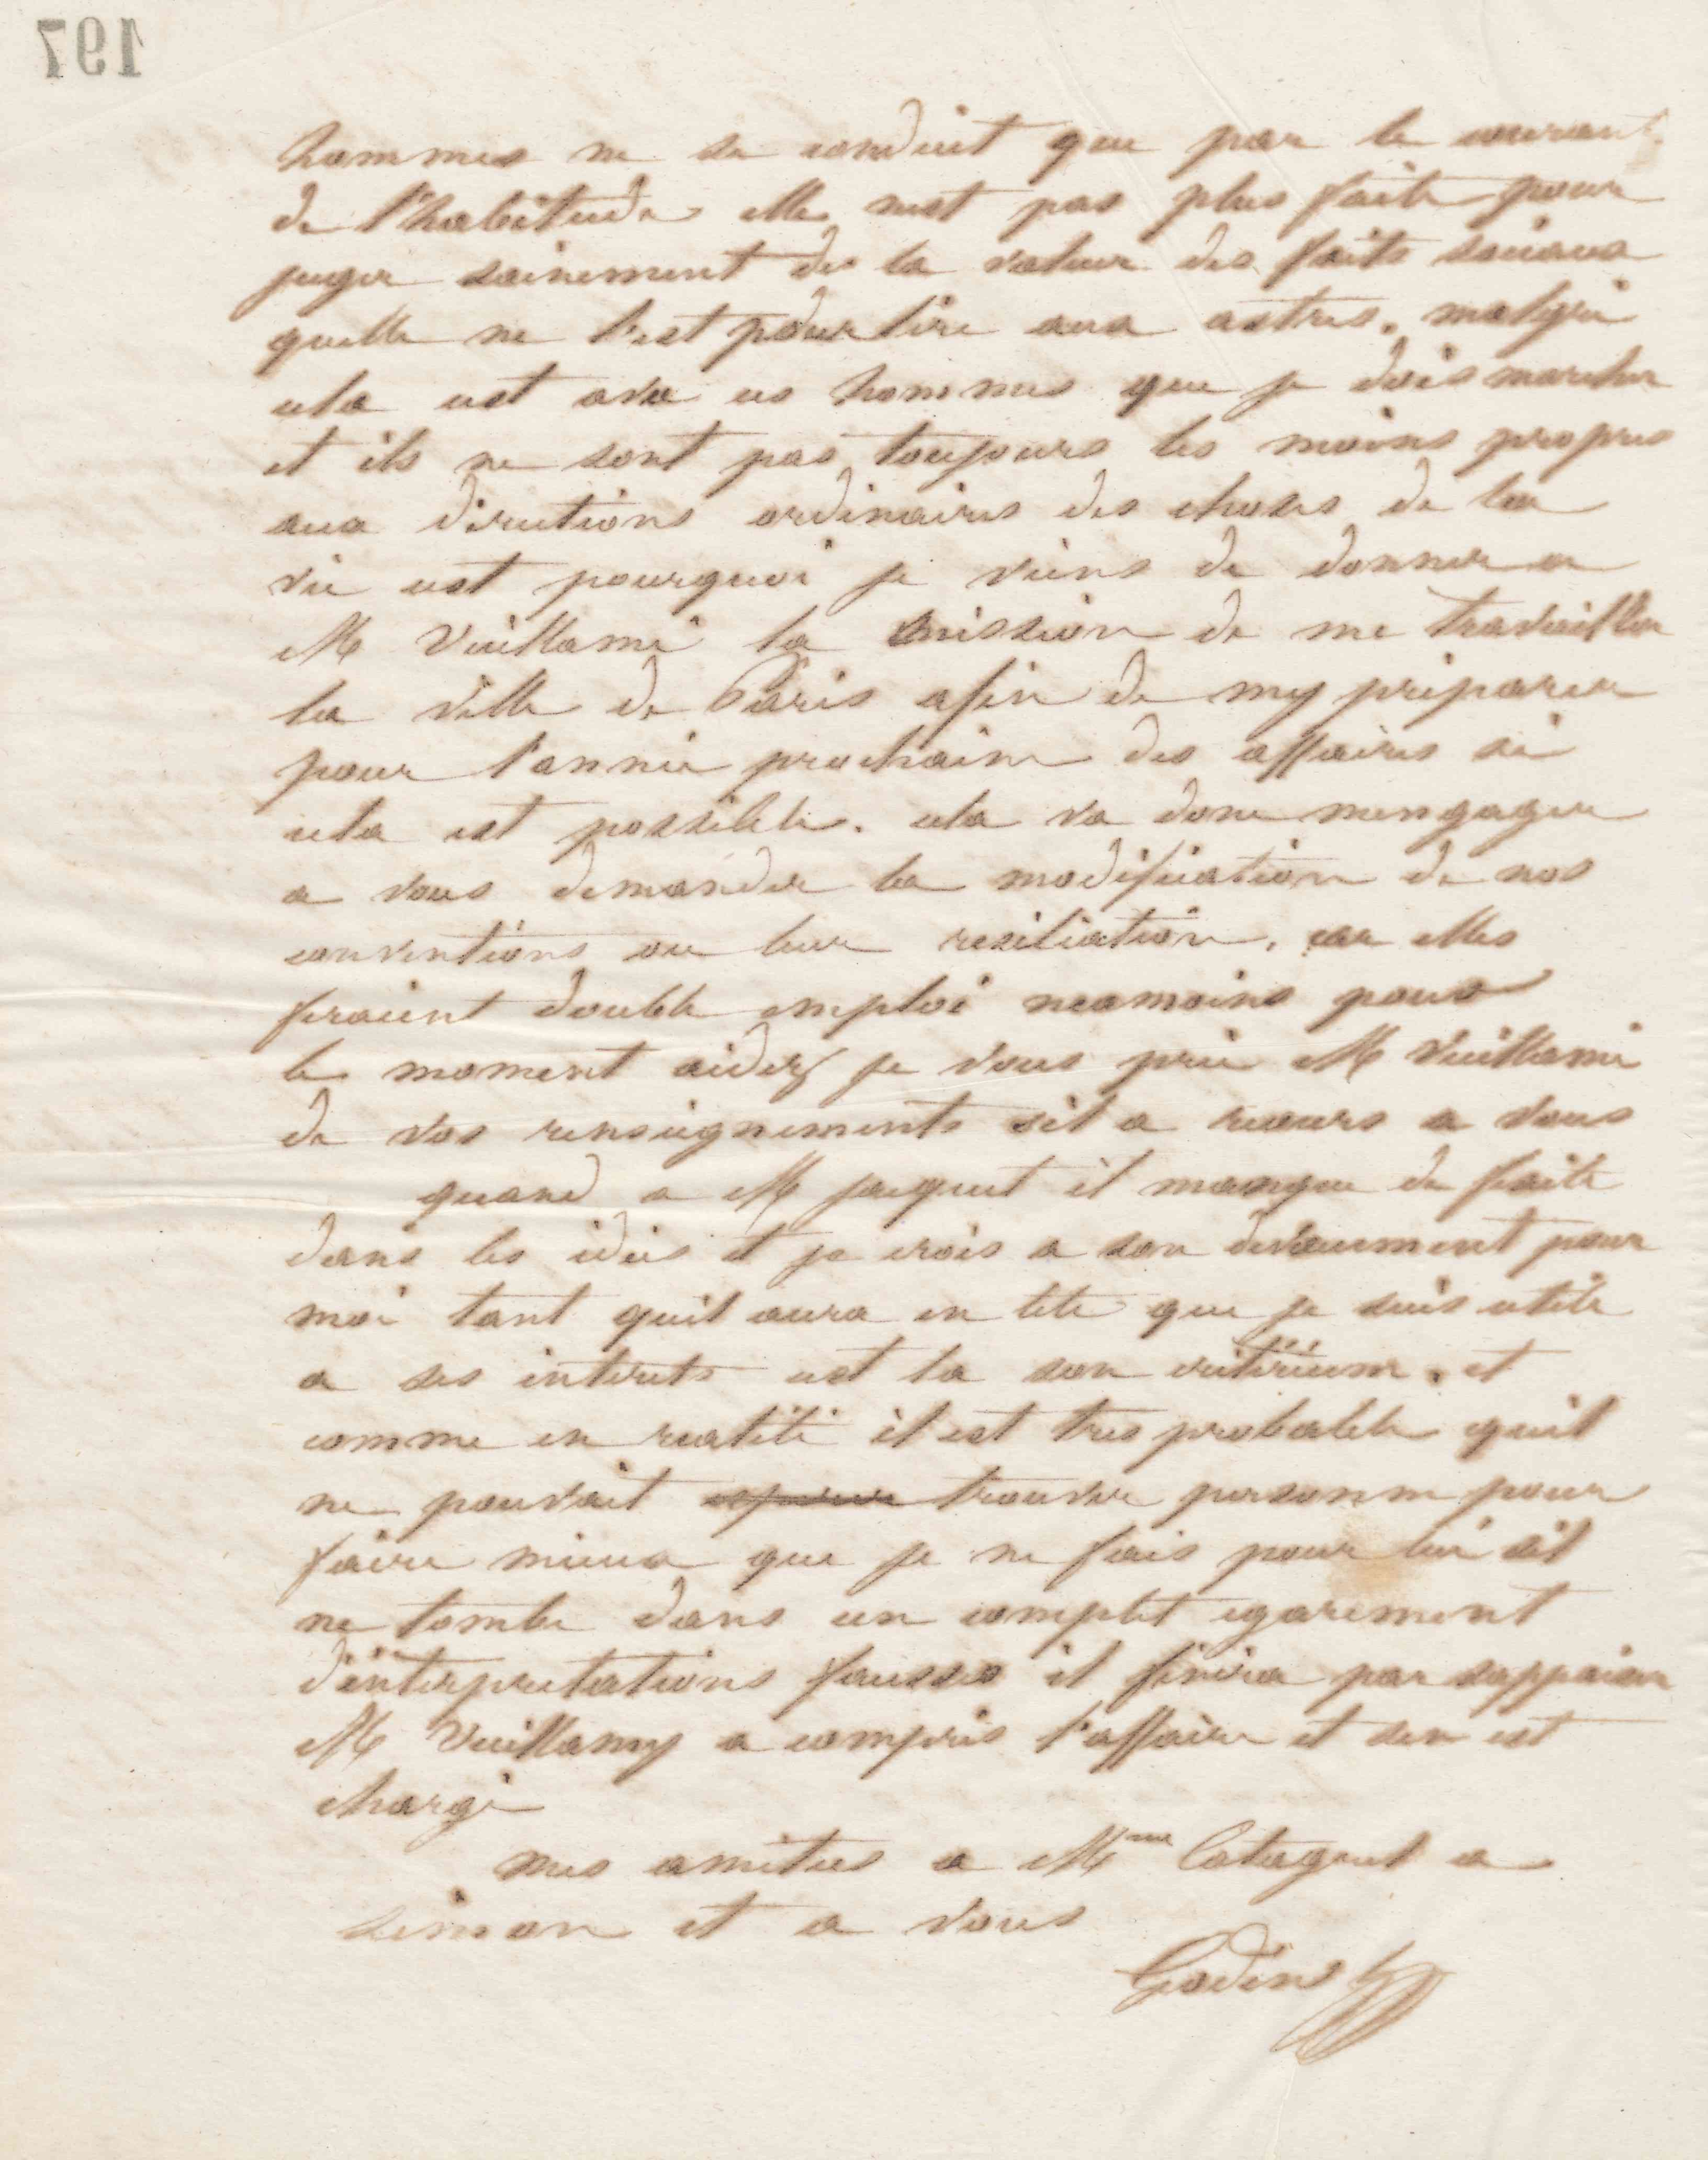 197
hommes ne se conduit que par le courant
de l'habitude elle nest pas plus faite pour
juger sainement de la valeur des faits sociaux
quelle ne l'est pour lire aux astres. malgré
cela cest avec ces hommes que je dois marcher
et ils ne sont pas toujours les moins propres
aux directions ordinaires des choses de la
vie cest pourquoi je viens de donner a
M Vuillamé la mission de me travailler
la ville de Paris afin de my préparer
pour l'année prochaine des affaires si
cela est possible. cela va donc mengager
a vous demander la modification de nos
conventions ou leur resiliation, car elles
feraient double emploi neamoins pour
le moment aidez je vous prie M Vuillamé
de vos renseignements sil a recours a vous
quand a M jacquet il manque de suite
dans les idées et je crois a son devouement pour
moi tant quil aura en tete que je suis utile
a ses interets cest la son critérium. et
comme en realité il est tres probable quil
ne pouvait trouver personne pour
faire mieux que je ne fais pour lui sil
ne tombe dans un complet egarement
d'interpretations fausses il finira par sappaiser
M Vuillamy a compris l'affaire et sen est
chargé
mes amities a Mme Catagnet a
simon et a vous
Godin